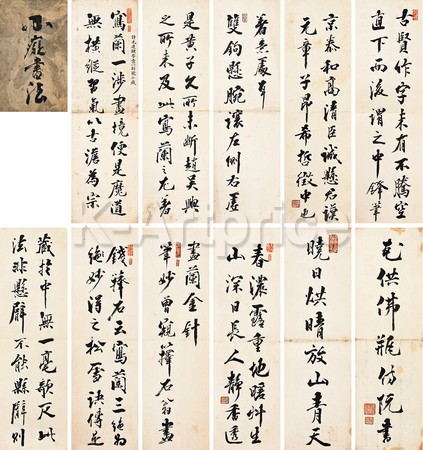 古賢作字未有不騰空
直下而後謂之中鋒筆
京泰和高清臣誠懸君謨
元章子昂希
徵中也
著意處
雙鉤懸腕讓左側右
是黃子久所未斷趙吳興
之所未及此寫蘭之尤者
寫蘭一涉畫境便是魔道
無橫縱習氣以古澹為宗
畫法
花供佛瓶
書
曉日烘晴放山青天
春濃露重地暖艸生
山深日長人靜香透
畫蘭金針
筆妙曾窺籜石翁畫
錢籜石云寫蘭三絕句
絕妙得之松雪訣傳
藏於中無一毫歉反此
法非懸臂不能懸臂則
K-Artprice